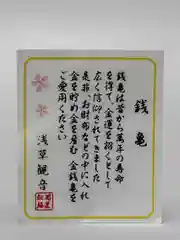 銭亀
銭亀は昔から萬年の寿命
を得て、金運を招くとして
広く信仰されてきました
是非、お財布などの中に入れ
金を貯め金を産む銭亀を
ご愛用ください
浅草観音